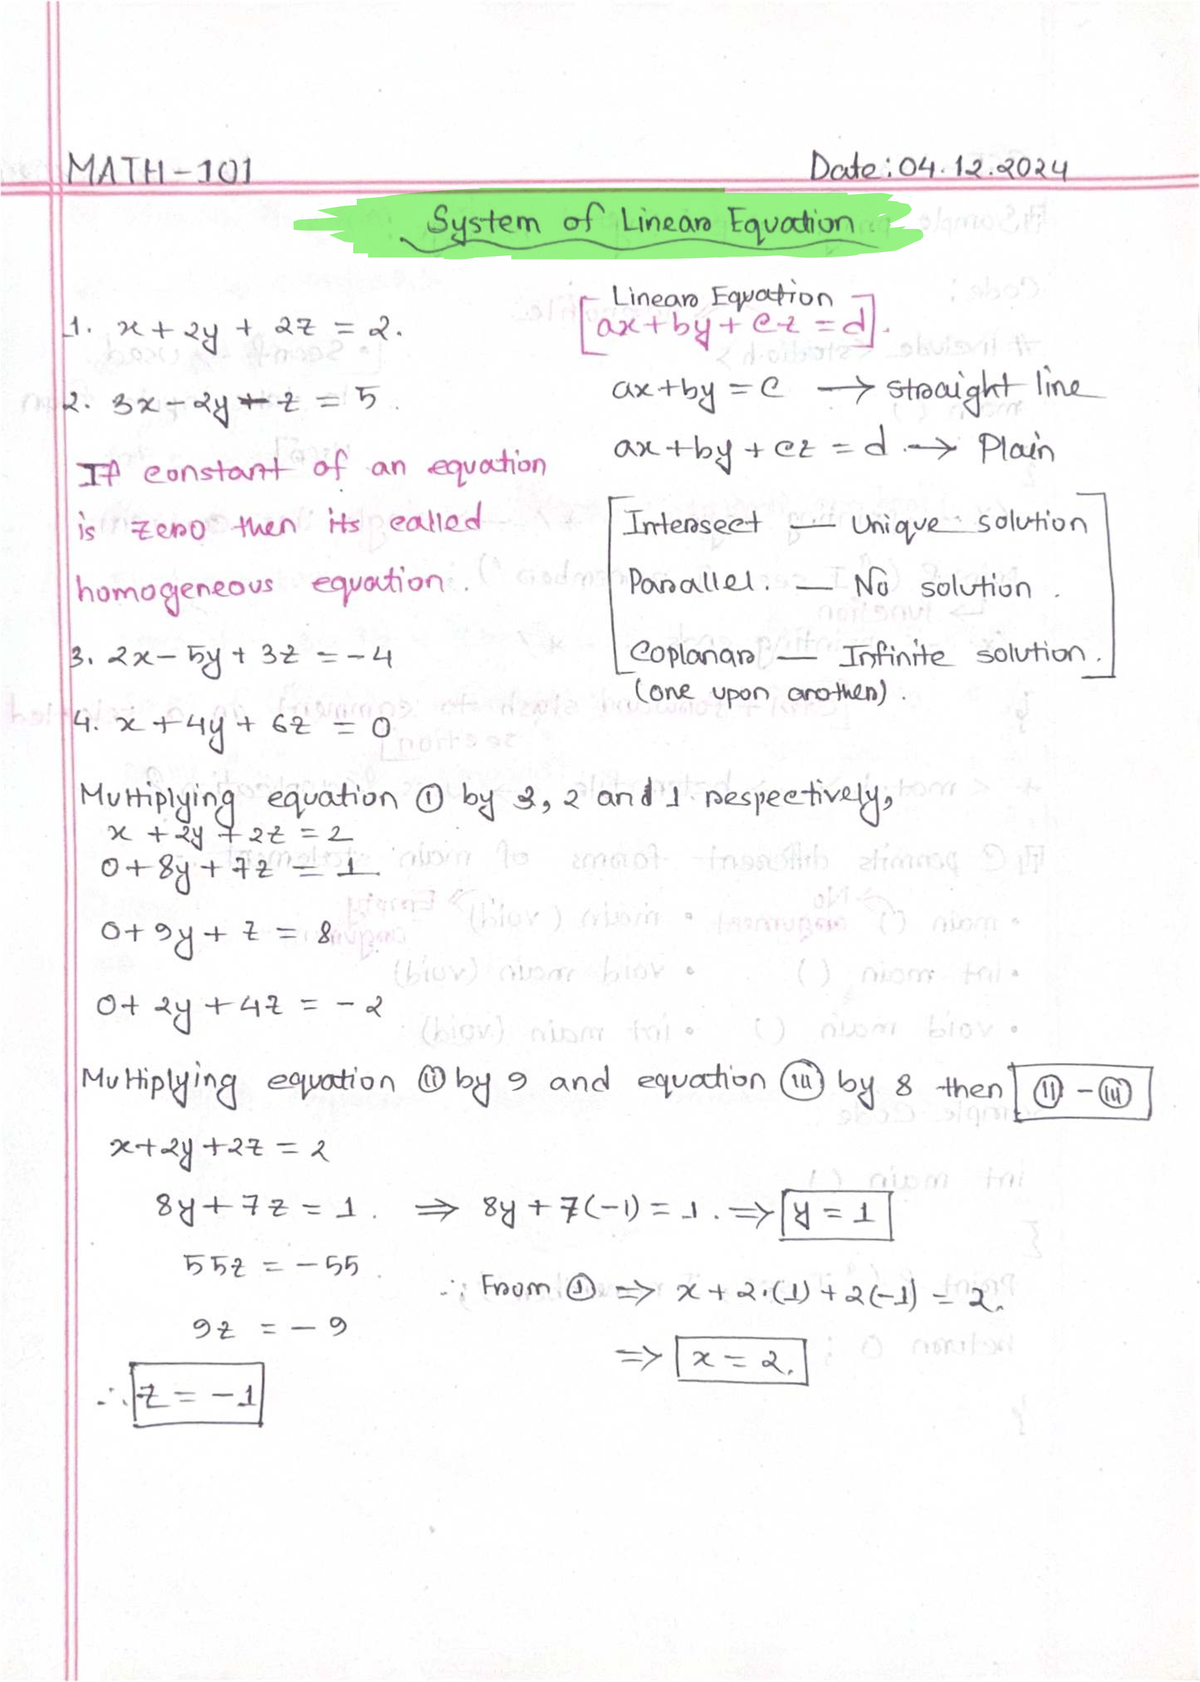 MATH-101
Date: 04.12.2024
System of Linear Equation
1. x + 2y + 2z = 2.
2. 3x - 2y - z = 5.
If constant of an equation
is zero then its called
homogeneous equation.
3. 2x - 5y + 3z = -4
4. x + 4y + 6z = 0
Linear Equation
[ax + by + cz = d].
ax + by = c → straight line
ax + by + cz = d → Plain
Intersect — Unique solution
Parallel. — No solution.
Coplanar — Infinite solution.
(one upon another).
Multiplying equation ① by 3, 2 and 1 respectively,
x + 2y + 2z = 2
0 + 8y + 7z = 1
0 + 9y + z = 8
0 + 2y + 4z = -2
Multiplying equation ⅱ by 9 and equation ⅲ by 8 then ⅱ - ⅲ
x + 2y + 2z = 2
8y + 7z = 1. ⇒ 8y + 7(-1) = 1. ⇒ y = 1
55z = -55
9z = -9
∴ z = -1
∴ From ① ⇒ x + 2.(1) + 2(-1) = 2.
⇒ x = 2.